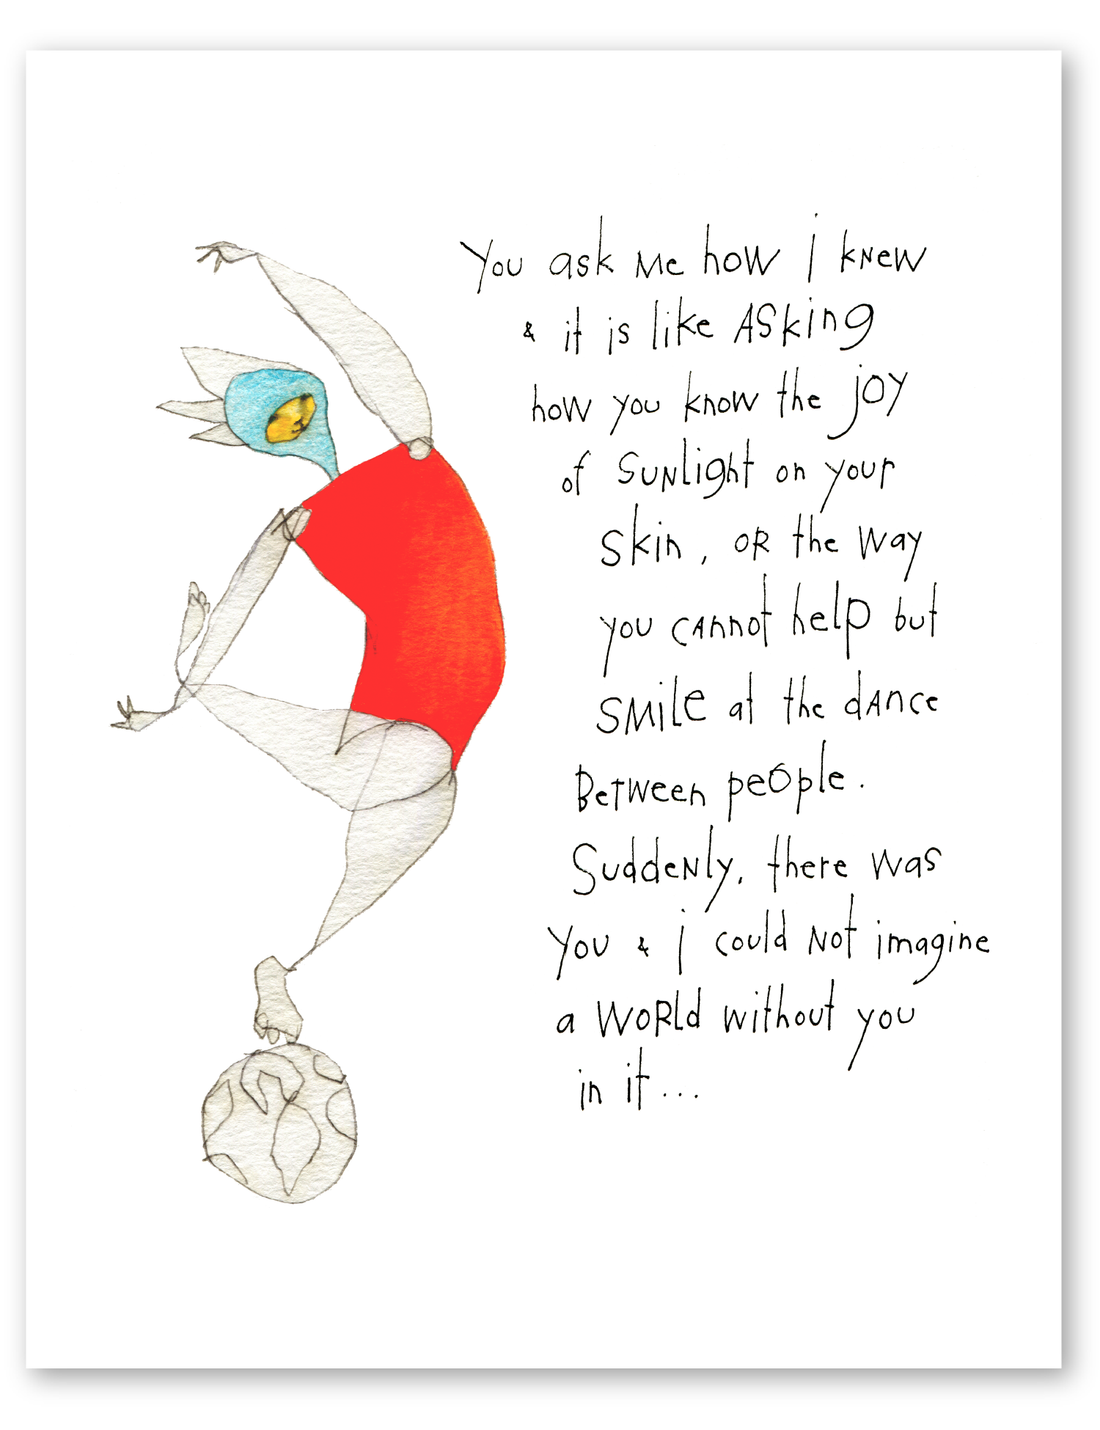 You ask me how i knew
& it is like ASking
how you know the joy
of sunlight on your
skin, or the way
you cannot help but
smile at the dance
Between people.
Suddenly, there was
you & i could not imagine
a world without you
in it...